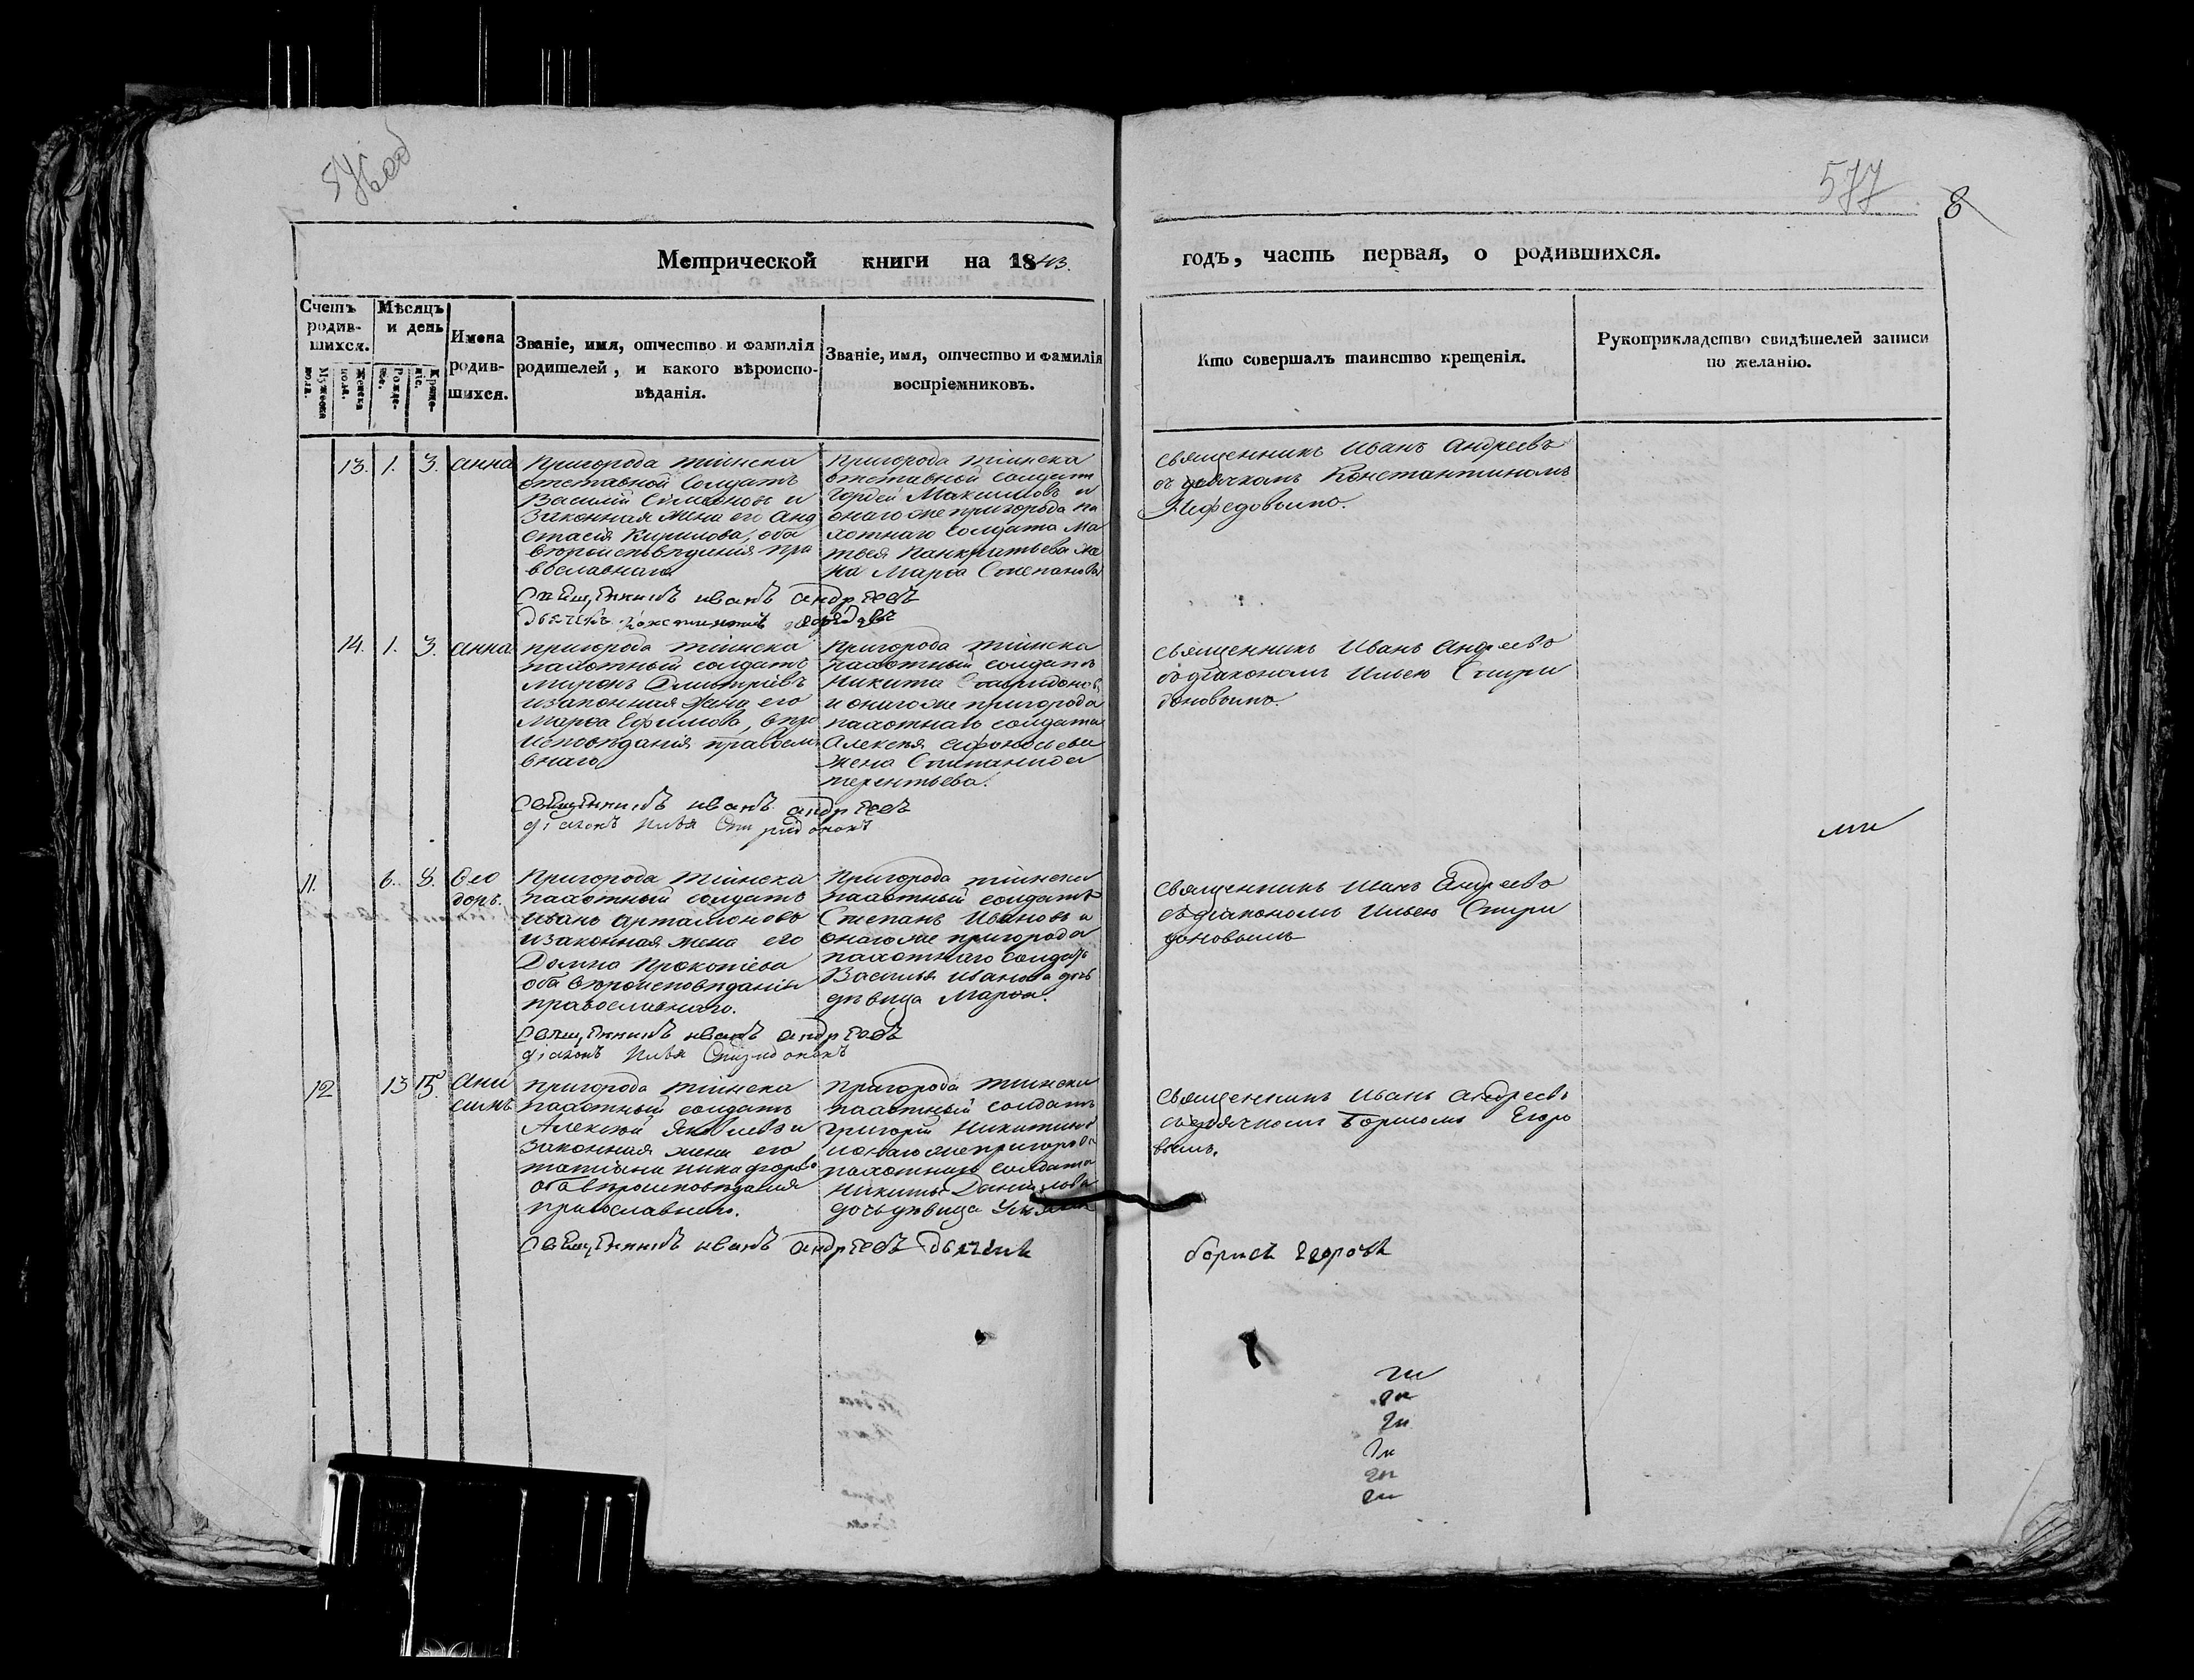 576об
577
8
Метрической книги на 1843.
годъ, часть первая, о родившихся.
Счетъ родив-шихся.
Мужеска пола.
Женска пола.
Мѣсяцъ и день
Рожде-ніе.
Креще-ніе.
Имена родив-шихся.
Званіе, имя, отчество и фамилія
родителей, и какого вѣроиспо-
вѣданія.
Званіе, имя, отчество и фамилія
воспріемниковъ.
Кто совершалъ таинство крещенія.
Рукоприкладство свидѣтелей записи
по желанію.
13. 1. 3. Анна
Пригорода Тіинска
отставной Солдатъ
Василій Симеоновъ и
Законная жена его Ана
стасія Кирилова, оба
вѣроисповѣданія пра
вославнаго
Пригорода Тіинска
отставной солдатъ
Гордей Максимовъ и
онагоже пригорода па
хотнаго солдата Ма
твея Панкратьева же
на Марѳа Степанова
Священникъ Иванъ Андреевъ
съ дьячкомъ Константиномъ
Нефедовымъ.
Священникъ иванъ андреевъ
Дьячекъ константинъ нефедовъ
14. 1. 3. Анна
пригорода Тіинска
пахотный солдатъ
Миронъ Дмитріевъ
и законная жена его
Марѳа Ефимова, вѣро
исповѣданія правосла
внаго
Пригорода Тіинска
пахотный солдатъ
Никита Спиридоновъ
и онагоже пригорода
пахотнаго солдата
Алексѣя Афонасьева
жена Степанида
терентьева.
Священникъ Иванъ Андреевъ
съ діакономъ Ильею Спири
доновымъ.
Священникъ иванъ андреевъ
діаконъ Илья Спиридоновъ
11. 6. 8. Ѳео
доръ.
Пригорода Тіинска
пахотный солдатъ
Иванъ Артамоновъ
и законная жена его
Домна Прокопіева
оба вѣроисповѣданія
православнаго.
Пригорода тіинска
пахотный солдатъ
Степанъ Ивановъ и
онагоже пригорода
пахотнаго солдата
Василья Иванова дочь
дѣвица Марѳа.
Священникъ Иванъ Андреевъ
съ діакономъ Ильею Спири
доновымъ
Священникъ иванъ андреевъ
діаконъ Илья Спиридоновъ
12 13 15. Ани
симъ
Пригорода Тіинска
пахотный солдатъ
Алексѣй Яковлевъ и
Законная жена его
татіана никифорова
оба вѣроисповѣданія
православнаго.
Пригорода Тіинска
пахотный солдатъ
Григорій Никитинъ
и онагоже пригорода
пахотнаго солдата
Никиты Данилова
дочь дѣвица
Священникъ Иванъ Андреевъ
съ дьячкомъ Борисомъ Егоро
вымъ.
Священникъ иванъ андреевъ дьячекъ
борисъ егоровъ